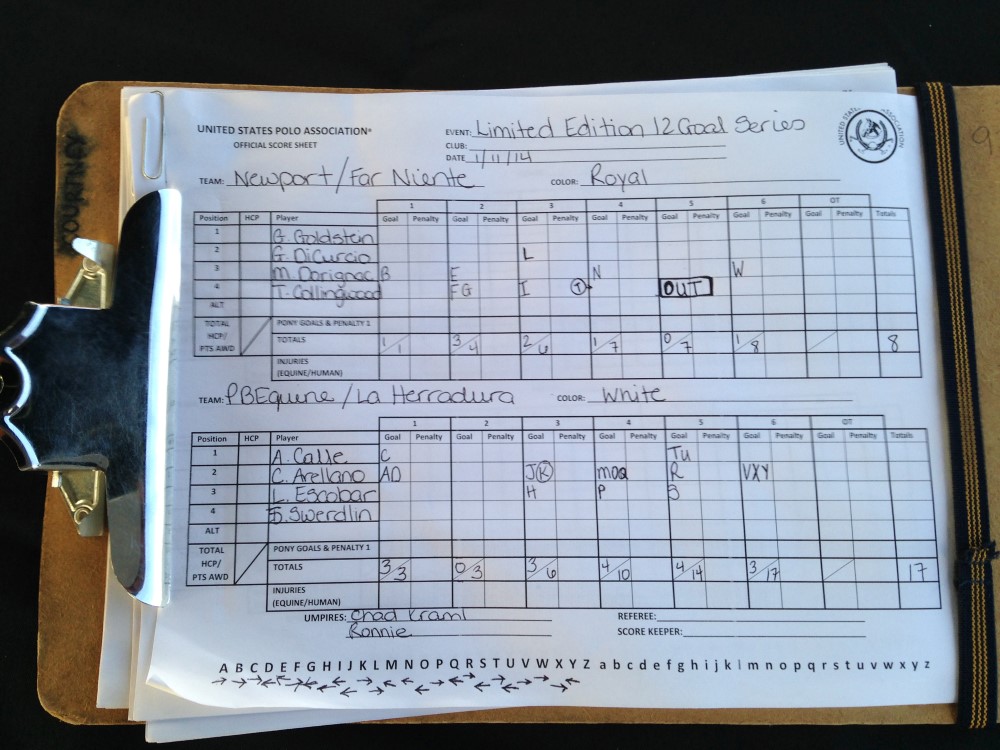 UNITED STATES POLO ASSOCIATION®
OFFICIAL SCORE SHEET
EVENT: Limited Edition 12 Goal Series
CLUB:
DATE 1/11/14
TEAM: Newport/Far Niente COLOR: Royal
1 2 3 4 5 6 OT
Position HCP Player Goal Penalty Goal Penalty Goal Penalty Goal Penalty Goal Penalty Goal Penalty Goal Penalty Totals
1 G. Goldstein
2 G. DiCurcio L
3 M. Dorignac B E N W
4 T. Collingwood FG I OUT
ALT
TOTAL HCP/ PTS AWD
PONY GOALS & PENALTY 1
TOTALS 1/1 3/4 2/6 1/7 0/7 1/8 / 8
INJURIES
(EQUINE/HUMAN)
TEAM: PBEquine/La Herradura COLOR: White
1 2 3 4 5 6 OT
Position HCP Player Goal Penalty Goal Penalty Goal Penalty Goal Penalty Goal Penalty Goal Penalty Goal Penalty Totals
1 A. Calle C TU
2 C. Arellano AD JK MOQ R VXY
3 L. Escobar H P S
4 S. Swerdlin
ALT
TOTAL HCP/ PTS AWD
PONY GOALS & PENALTY 1
TOTALS 3/3 0/3 3/6 4/10 4/14 3/17 / 17
INJURIES
(EQUINE/HUMAN)
UMPIRES: Chad Kraml REFEREE:
Ronnie SCORE KEEPER:
A B C D E F G H I J K L M N O P Q R S T U V W X Y Z a b c d e f g h i j k l m n o p q r s t u v w x y z